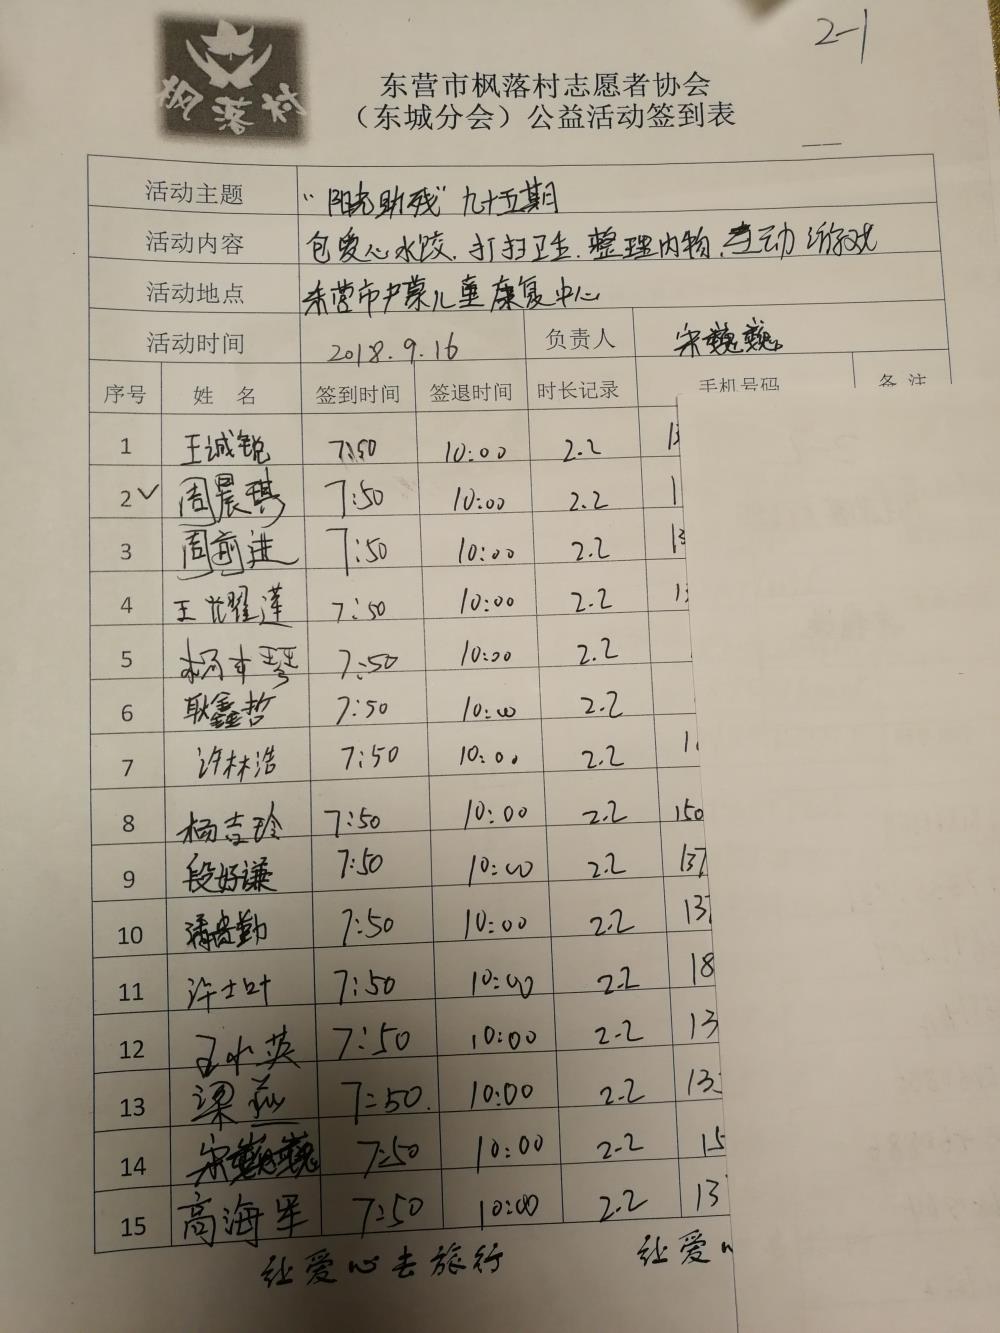 2-1
枫落村
东营市枫落村志愿者协会
（东城分会）公益活动签到表
活动主题 “阳光助残”九十五期
活动内容 包爱心水饺.打扫卫生.整理内物.互动游戏
活动地点 东营市户蒙儿童康复中心
活动时间 2018.9.16 负责人 宋巍巍
序号 姓 名 签到时间 签退时间 时长记录 手机号码 备 注
1 王诚锐 7:50 10:00 2.2 13
2 ✓ 周晨琪 7:50 10:00 2.2 1
3 周前进 7:50 10:00 2.2 13
4 王 莲 7:50 10:00 2.2 1
5 杨 7:50 10:00 2.2
6 耿鑫哲 7:50 10:00 2.2
7 许林浩 7:50 10:00 2.2 1
8 杨吉玲 7:50 10:00 2.2 150
9 段好谦 7:50 10:00 2.2 137
10 潘 勤 7:50 10:00 2.2 137
11 许士叶 7:50 10:00 2.2 18
12 王水英 7:50 10:00 2.2 13
13 梁 7:50 10:00 2.2 13
14 宋巍巍 7:50 10:00 2.2 15
15 高海军 7:50 10:00 2.2 13
让爱心去旅行 让爱心